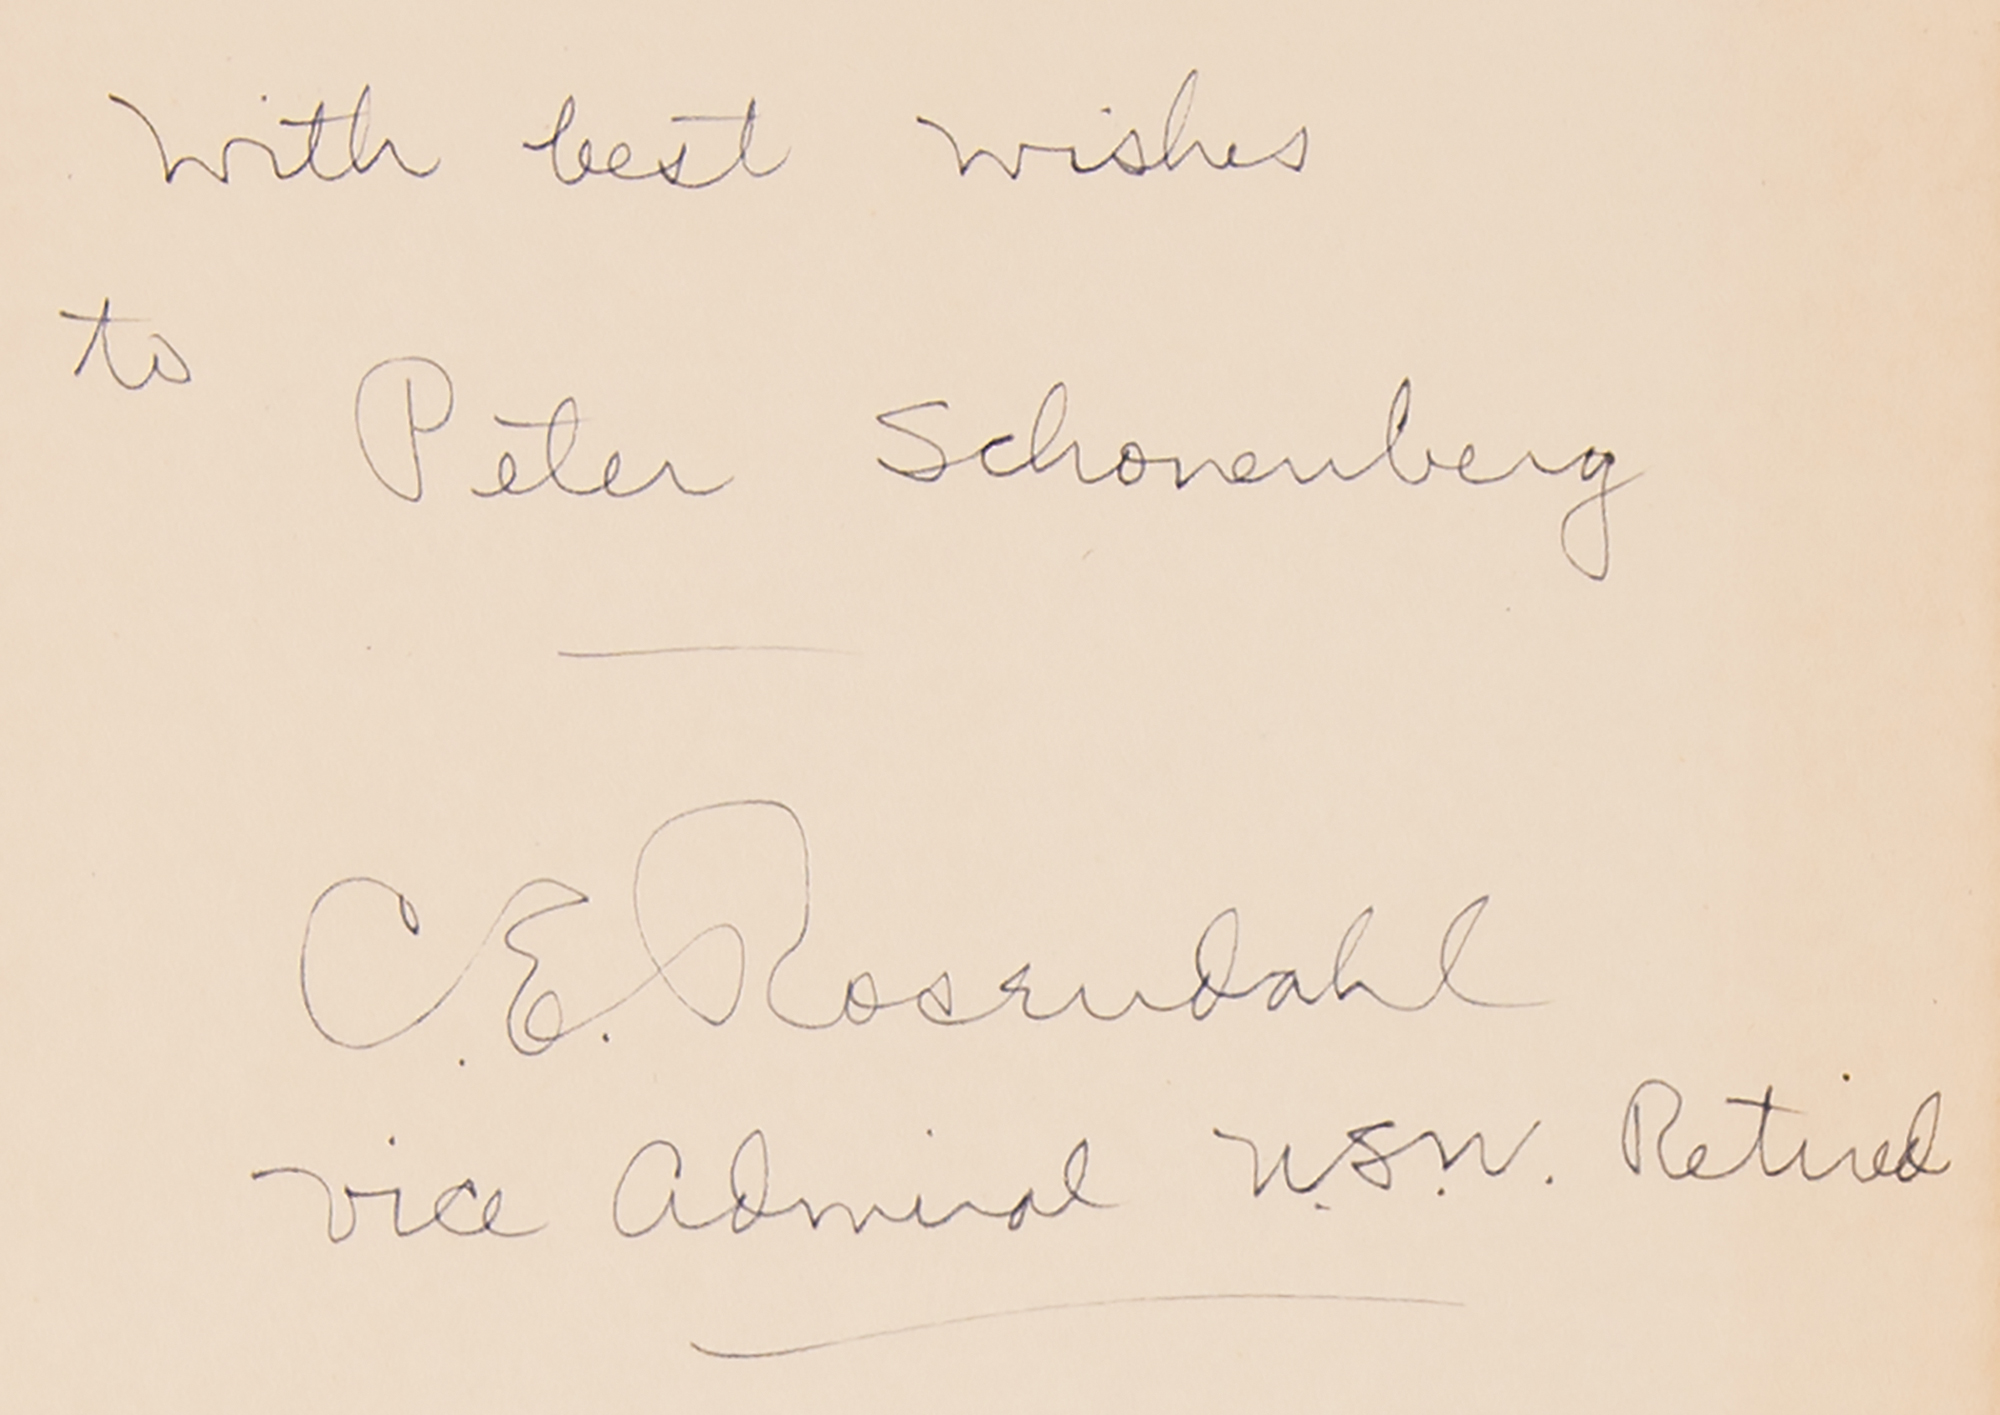 With best wishes
to
Peter Schonenberg
C. E. Rosendahl
Vice Admiral U.S.N. Retired